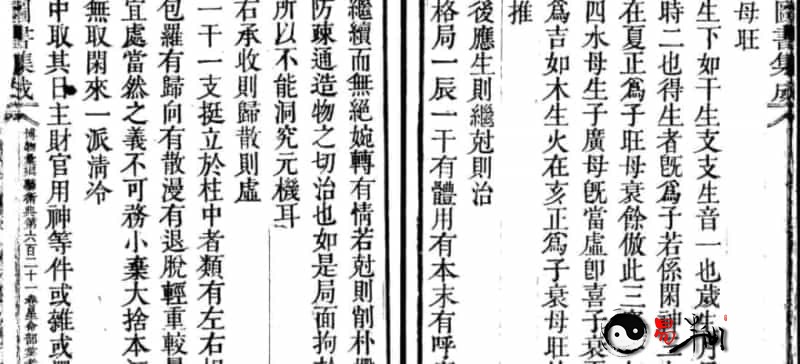 圖書集成
母旺
生下如干生支支生音一也歲生
時二也得生者旣爲子若係閑神
在夏正爲子旺母衰餘倣此三
四水母生子廣母旣當虛卽喜子衰
爲吉如木生火在亥正爲子衰母旺
推
後應生則繼尅則治
格局一辰一干有體用有本末有呼
繼續而無絕婉轉有情若尅則削朴
防疎通造物之切治也如是局面拘
所以不能洞究元機耳
右承收則歸散則虛
一干一支挺立於柱中者類有左右
包羅有歸向有散漫有退脫輕重較
宜處當然之義不可務小棄大捨本
無取閑來一派清泠
中取其日主財官用神等件或雜或
圖書集成
博物彙編藝術典第六百二十一卷星命部